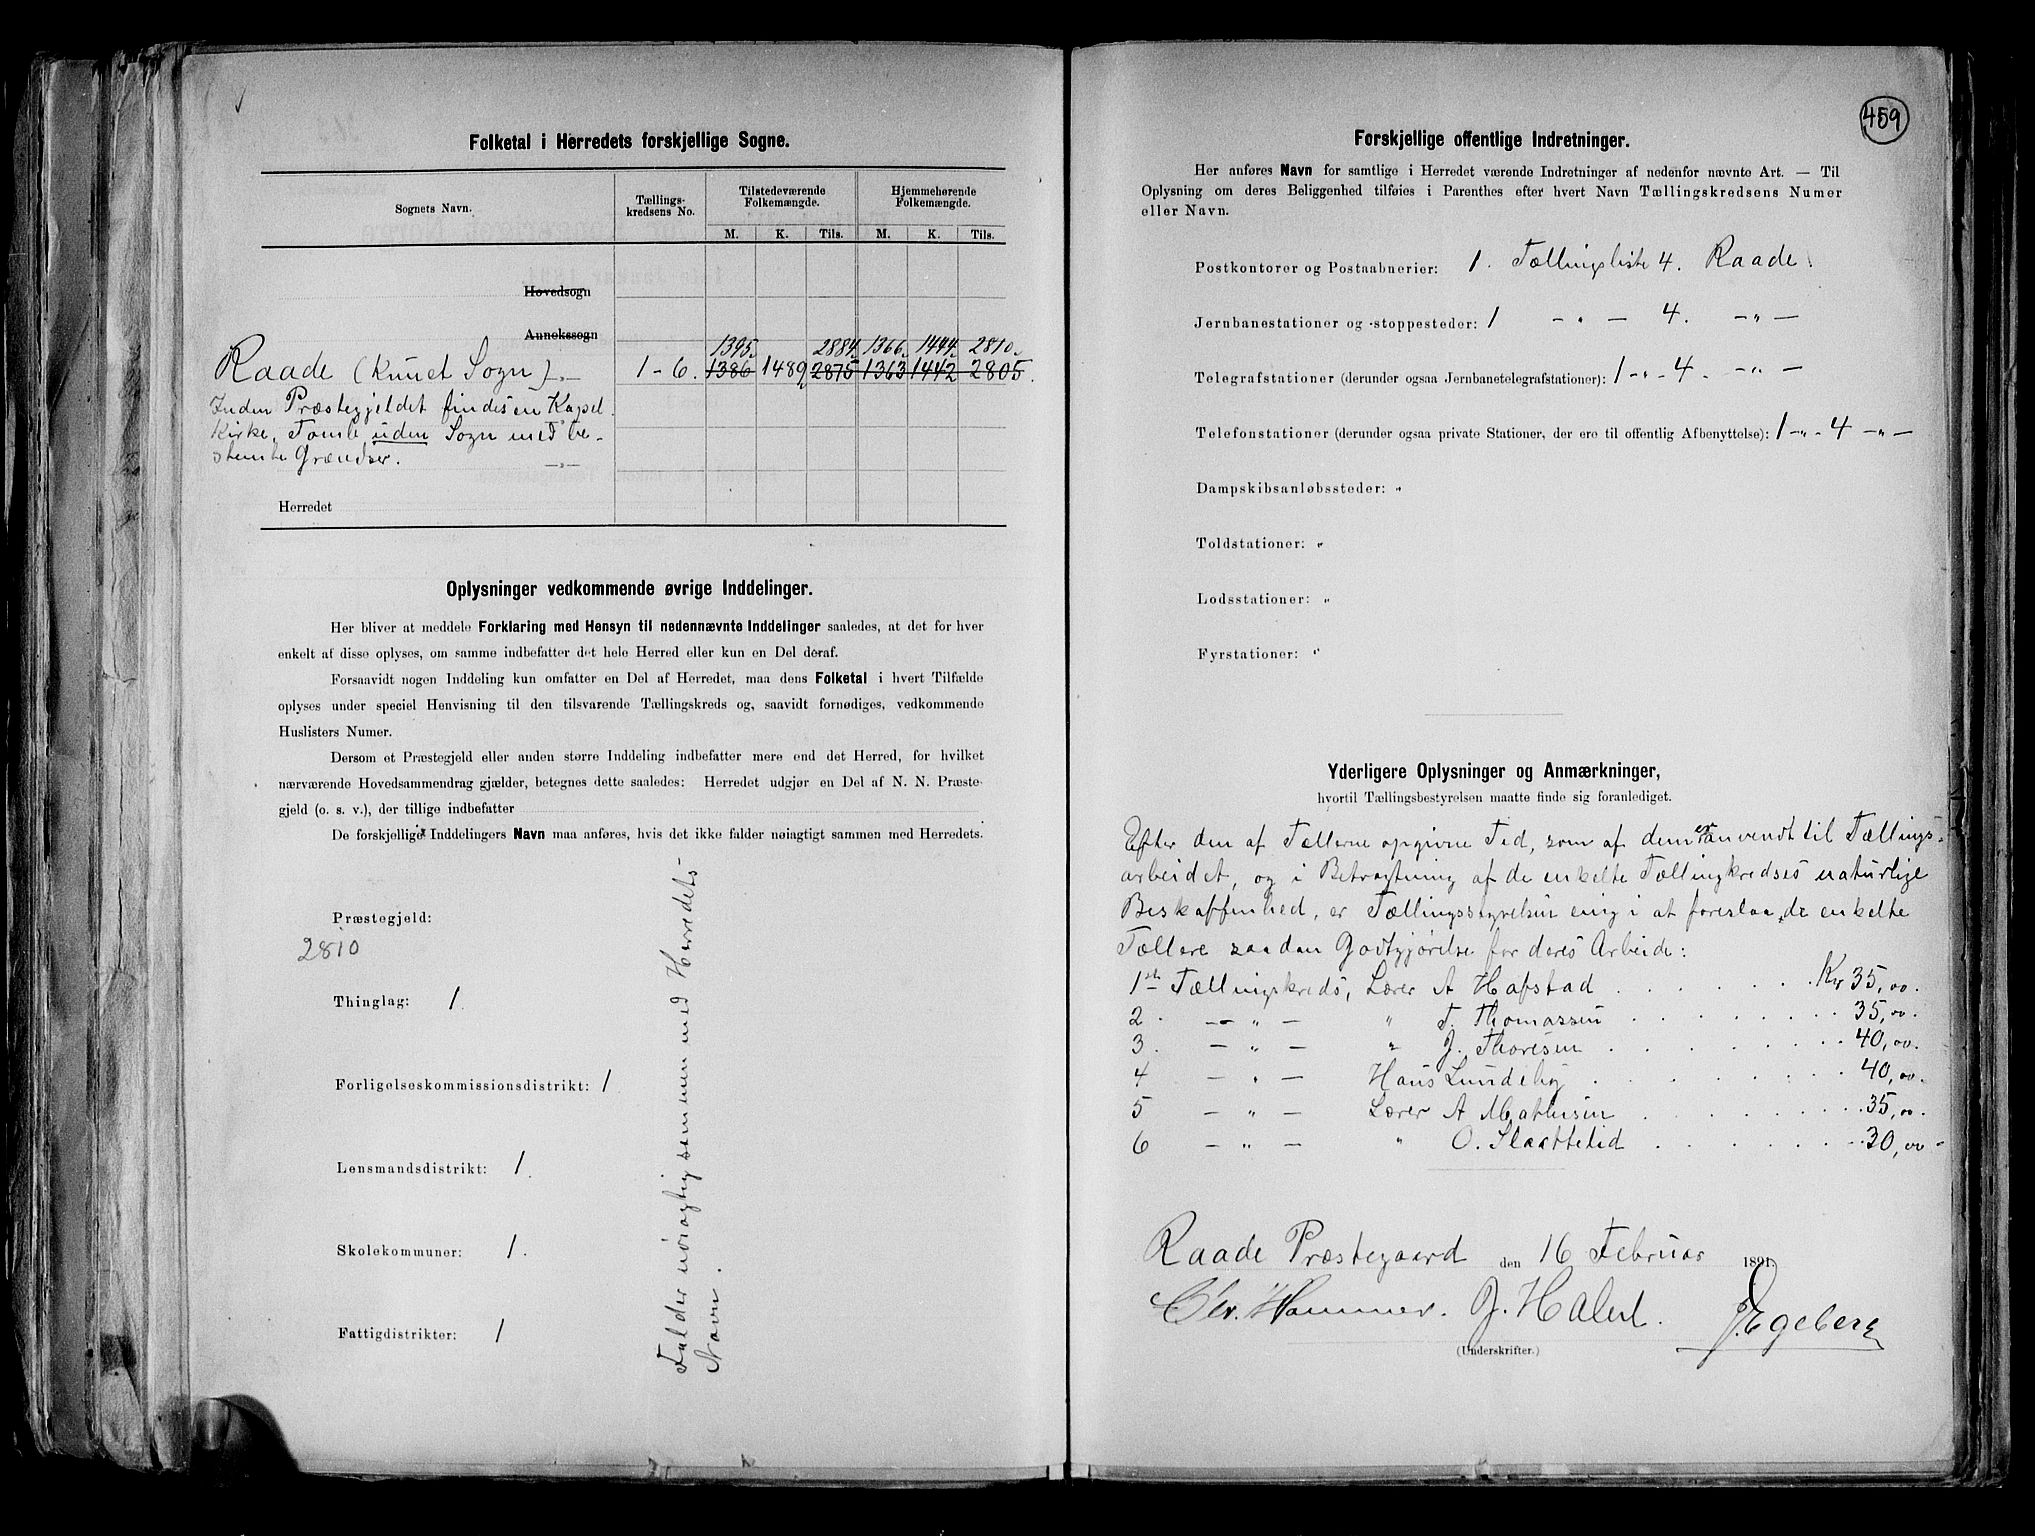 Folketal i Herredets forskjellige Sogne.
Sognets Navn.
Tællings-
kredsens No.
Tilstedeværende
Folkemængde.
Hjemmehørende
Folkemængde.
M. K. Tils. M. K. Tils.
Hovedsogn
Annekssogn
1395. 2884. 1366. 1444. 2810.
Raade (Kun et Sogn). 1-6. 1386 1489 2875 1363 1442 2805.
Inden Præstegjeldet findes en Kapel
Kirke, Tomle, uden Sogn med be-
stemte Grændser.
Herredet
Oplysninger vedkommende øvrige Inddelinger.
Her bliver at meddele Forklaring med Hensyn til nedennævnte Inddelinger saaledes, at det for hver
enkelt af disse oplyses, om samme indbefatter det hele Herred eller kun en Del deraf.
Forsaavidt nogen Inddeling kun omfatter en Del af Herredet, maa dens Folketal i hvert Tilfælde
oplyses under speciel Henvisning til den tilsvarende Tællingskreds og, saavidt fornødiges, vedkommende
Huslisters Numer.
Dersom et Præstegjeld eller anden større Inddeling indbefatter mere end det Herred, for hvilket
nærværende Hovedsammendrag gjælder, betegnes dette saaledes: Herredet udgjør en Del af N. N. Præste-
gjeld (o. s. v.), der tillige indbefatter
De forskjellige Inddelingers Navn maa anføres, hvis det ikke falder nøiagtigt sammen med Herredets.
Præstegjeld:
2810
Thinglag: 1.
Forligelseskommissionsdistrikt: 1
Lensmandsdistrikt: 1.
Skolekommuner: 1.
Fattigdistrikter: 1
Falder nøiagtig sammen med Herredets
Navn.
459
Forskjellige offentlige Indretninger.
Her anføres Navn for samtlige i Herredet værende Indretninger af nedenfor nævnte Art. — Til
Oplysning om deres Beliggenhed tilføies i Parenthes efter hvert Navn Tællingskredsens Numer
eller Navn.
Postkontorer og Postaabnerier: 1. Tællingsliste 4. Raade.
Jernbanestationer og -stoppesteder: 1 — " — 4. — " —
Telegrafstationer (derunder ogsaa Jernbanetelegrafstationer): 1 - " - 4. — " —
Telefonstationer (derunder ogsaa private Stationer, der ere til offentlig Afbenyttelse): 1 - " - 4 - " -
Dampskibsanløbssteder: "
Toldstationer: "
Lodsstationer: "
Fyrstationer: "
Yderligere Oplysninger og Anmærkninger,
hvortil Tællingsbestyrelsen maatte finde sig foranlediget.
Efter den af Tællerne opgivne Tid, som af dem er anvendt til Tællings-
arbeidet, og i Betragtning af de enkelte Tællingkredses naturlige
Beskaffenhed, er Tællingsstyrelsen enig i at foreslaa de enkelte
Tællere saadan Godtgjørelse for deres Arbeide:
1ste Tællingskreds, Lærer A Hafstad . . . . Kr 35,00.
2. — " — " T. Thomassen . . . . 35,00.
3. — " — " J. Thoresen . . . . 40,00.
4 — " — Hans Lundeby . . . . 40,00.
5 — " — Lærer A Mathesen . . . . 35,00.
6 — " — " O. Slaattelid . . . . 30,00
Raade Præstegaard den 16 Februar 1891.
Chr. Hammer. J. Egeberg
(Underskrifter.)